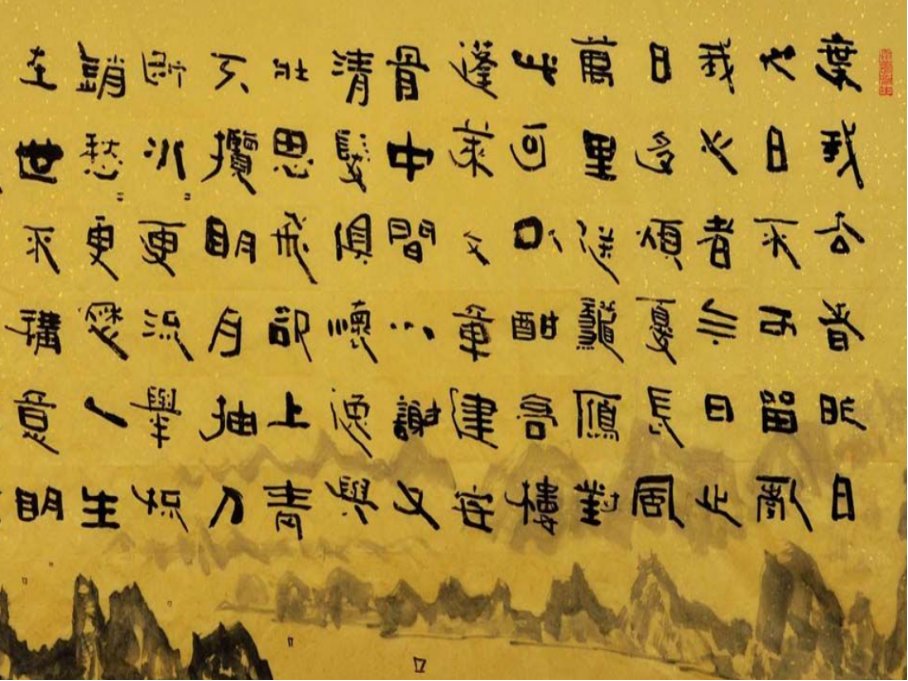 棄我去者昨日
之日不可留亂
我心者今日之
日多煩憂長風
萬里送龝鴈對
此可以酣高樓
蓬萊文章建安
骨中間小謝又
清髮俱懷逸興
壯思飛欲上青
天攬明月抽刀
斷水〻更流舉杯
銷愁〻更愁人生
在世不稱意明